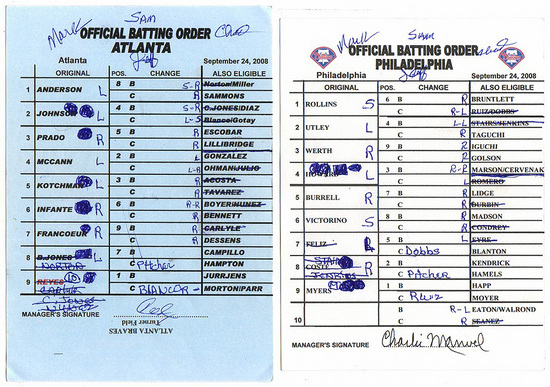 Mark Sam Chad
OFFICIAL BATTING ORDER
ATLANTA
Jeff
Atlanta September 24, 2008
ORIGINAL POS. CHANGE ALSO ELIGIBLE
1 ANDERSON L 8 B S-R Norton/Miller
C R SAMMONS
2 JOHNSON L 4 B S-R C.JONES/DIAZ
C L-S Blanco/Gotay
3 PRADO R 5 B R ESCOBAR
C R LILLIBRIDGE
4 MCCANN L 2 B L GONZALEZ
C L-R OHMAN/JULIO
5 KOTCHMAN L 3 B R ACOSTA
C R TAVAREZ
6 INFANTE R 6 B R-R BOYER/NUNEZ
C R BENNETT
7 FRANCOEUR R 9 B R CARLYLE
C R DESSENS
8 B.JONES L 7 B CAMPILLO
NORTON C Pitcher HAMPTON
9 REYES R 1 B JURRJENS
C BLANCO R- MORTON/PARR
C. Jones
MANAGER'S SIGNATURE
ATLANTA BRAVES
Turner Field
Mark Sam
OFFICIAL BATTING ORDER
PHILADELPHIA
Jeff
Philadelphia September 24, 2008
ORIGINAL POS. CHANGE ALSO ELIGIBLE
1 ROLLINS S 6 B R BRUNTLETT
C R-L RUIZ/DOBBS
2 UTLEY L 4 B L-L STAIRS/JENKINS
C R TAGUCHI
3 WERTH R 9 B R IGUCHI
C R GOLSON
4 HOWARD L 3 B R-R MARSON/CERVENAK
C L ROMERO
5 BURRELL R 7 B R LIDGE
C R DURBIN
6 VICTORINO S 8 B R MADSON
C R CONDREY
7 FELIZ R 5 B L EYRE
C Dobbs BLANTON
STAIRS
8 COSTE R 2 B R KENDRICK
JENKINS C Pitcher HAMELS
9 MYERS R 1 B HAPP
C Ruiz MOYER
10 B R-L EATON/WALROND
C R SEANEZ
MANAGER'S SIGNATURE Charlie Manuel